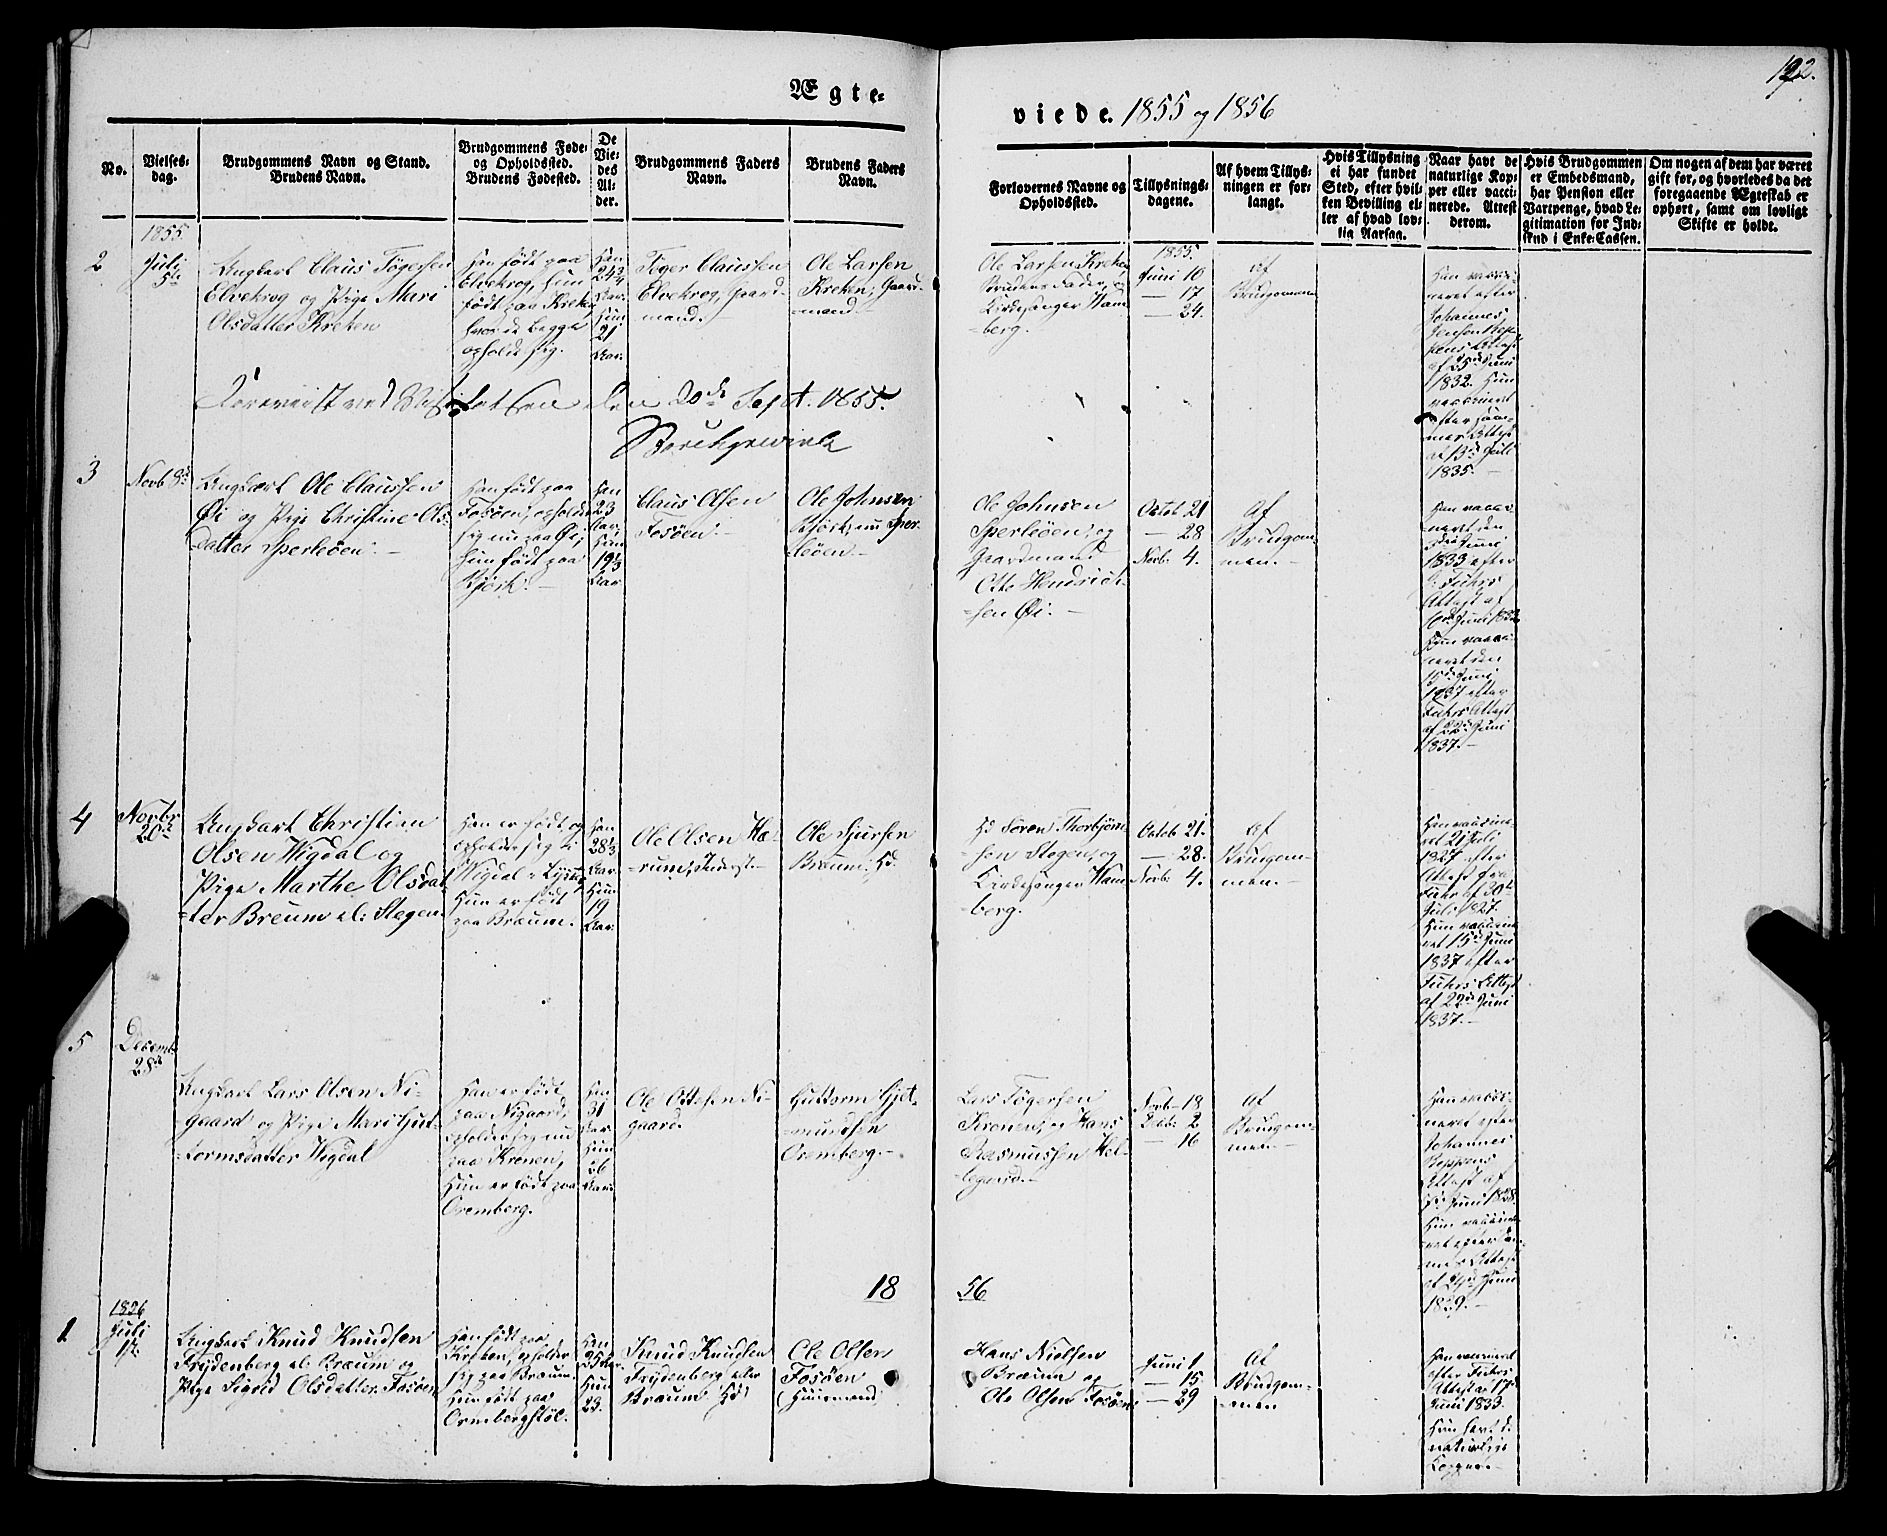 Ægte-
viede. 1855 og 1856
192.
No.
Vielses-
dag.
Brudgommens Navn og Stand.
Brudens Navn.
Brudgommens Føde-
og Opholdssted.
Brudens Fødested.
De
Vie-
des
Al-
der.
Brudgommens Faders
Navn.
Brudens Faders
Navn.
Forlovernes Navne og
Opholdssted.
Tillysnings-
dagene.
Af hvem Tillys-
ningen er for-
langt.
Hvis Tillysning
ei har fundet
Sted, efter hvil-
ken Bevilling el-
ler af hvad lov-
lig Aarsag.
Naar havt de
naturlige Kop-
per eller vacci-
nerede. Attest
derom.
Hvis Brudgommen
er Embedsmand,
har Pension eller
Vartpenge, hvad Le-
gitimation for Ind-
skud i Enke-Cassen.
Om nogen af dem har været
gift før, og hvorledes da det
foregaaende Ægteskab er
ophørt, samt om lovligt
Skifte er holdt.
1855.
2
Juli
5te
Ungkarl Claus Tøgersen
Elvekrog og Pige Mari
Olsdatter Kreken
Han født paa
Elvekrog, Hun
født paa Kreken
hvor de begge
opholde sig.
Han
24 3/4
Aar
Hun
21
Aar.
Tøger Claussen
Elvekrog, Gaard-
mand.
Ole Larsen
Kreken, Gaard-
mand.
Ole Larsen Kreken,
Brudens Fader, og
Kirkesanger Ham-
berg.
1855.
Juni 10
— 17
— 24.
af
Brudgommen
Han vacci-
neret efter
Johannes
Jensen Hep-
pens Attest
af 25de Juni
1832. Hun
vaccineret
efter sam-
mes Attest
af 13de Juli
1835.
Foreviist ved Visitatsen den 20de Sept. 1855.
3
Novb 8de
Ungkarl Ole Claussen
Øi og Pige Christine Ols-
datter Sperleøen.—
Han født paa
Fosøen, opholder
sig nu paa Øi;
Hun født paa
Bjørk.—
Han
23
Aar,
Hun
19 1/3
Aar
Claus Olsen
Fosøen.—
Ole Johnsen
Bjørk, nu Sper-
leøen.—
Ole Johnsen
Sperleøen, og
Gaardmand
Otto Hendrik-
sen Øi.—
Octob 21
— 28
Novb. 4.
Af
Brudgom-
men.—
Han vacci-
neret den
Juni
1833 efter
Fuhrs
Attest af
Juni 1833
Hun vacci-
neret den
15de Juni
1837 efter
Fuhrs Attest
af 22de Juni
1837.—
4
Novbr
20de
Ungkarl Christian
Olsen Wigdal og
Pige Marthe Olsdat-
ter Breum el. Stegen.
Han er født og
opholder sig i
Wigdal i Lyster,
Hun er født
paa Bræum.
Han
28 1/3
Aar
Hun
19
Aar.
Ole Olsen Hæ-
rum, Inderst.—
Ole Sjursen
Bræum, Hd.
Hd Søren Thorbjørn-
sen Stegen, og
Kirkesanger Ham-
berg.
Octob 21.
— 28.
Novb. 4.
af
Brudgom-
men.—
Han vaccine-
ret 21 Juli
1827 efter
Attest fra
Fuhr af 30te
Juli 1827.
Hun vaccine-
ret 15de Juni
1837 efter
Fuhrs Attest
af 22de Juni
1837.—
5
Decemb.
28de
Ungkarl Lars Olsen Ni-
gaard og Pige Mari Gut-
tormsdatter Wigdal
Han er født
paa Nigaard,
opholder sig nu
paa Kronen,
Hun er født paa
Oremberg.
Han
31
Aar
Hun
26
Aar.
Ole Ottesen Ni-
gaard.
Guttorm Gjet-
mundsen
Oremberg.—
Lars Tøgersen
Kronen, og Hans
Rasmussen Hel-
legaard.—
Novb 18
Decb. 2
— 16
af
Brudgom-
men.—
Han vacci-
neret efter
Johannes
Heppens
Attest af
Juni 1828.
Hun vaccine-
ret efter sam-
mes Attest
af 24de Juni
1829.—
18
56
1856
1
Juli
17.
Ungkarl Knud Knudsen
Frydenberg el. Bræum og
Pige Sigrid Olsdatter Fosøen
Han født paa
Kreken, opholder
sig paa Bræum.
Hun født paa
Ormbergstøl.
Han
25 Aar.
Hun
23.
Knud Knudsen
Frydenberg eller
Bræum Hd
Ole Olsen
Fosøen
(Huusmand)
Hans Nielsen
Bræum og
Ole Olsen Fosøen
Juni 1
— 15
— 29
Af
Brudgom-
men
Han vaccineret
efter Fuhrs
Attest af 17de
Juni 1833.
Hun havt de
naturlige
Kopper.—